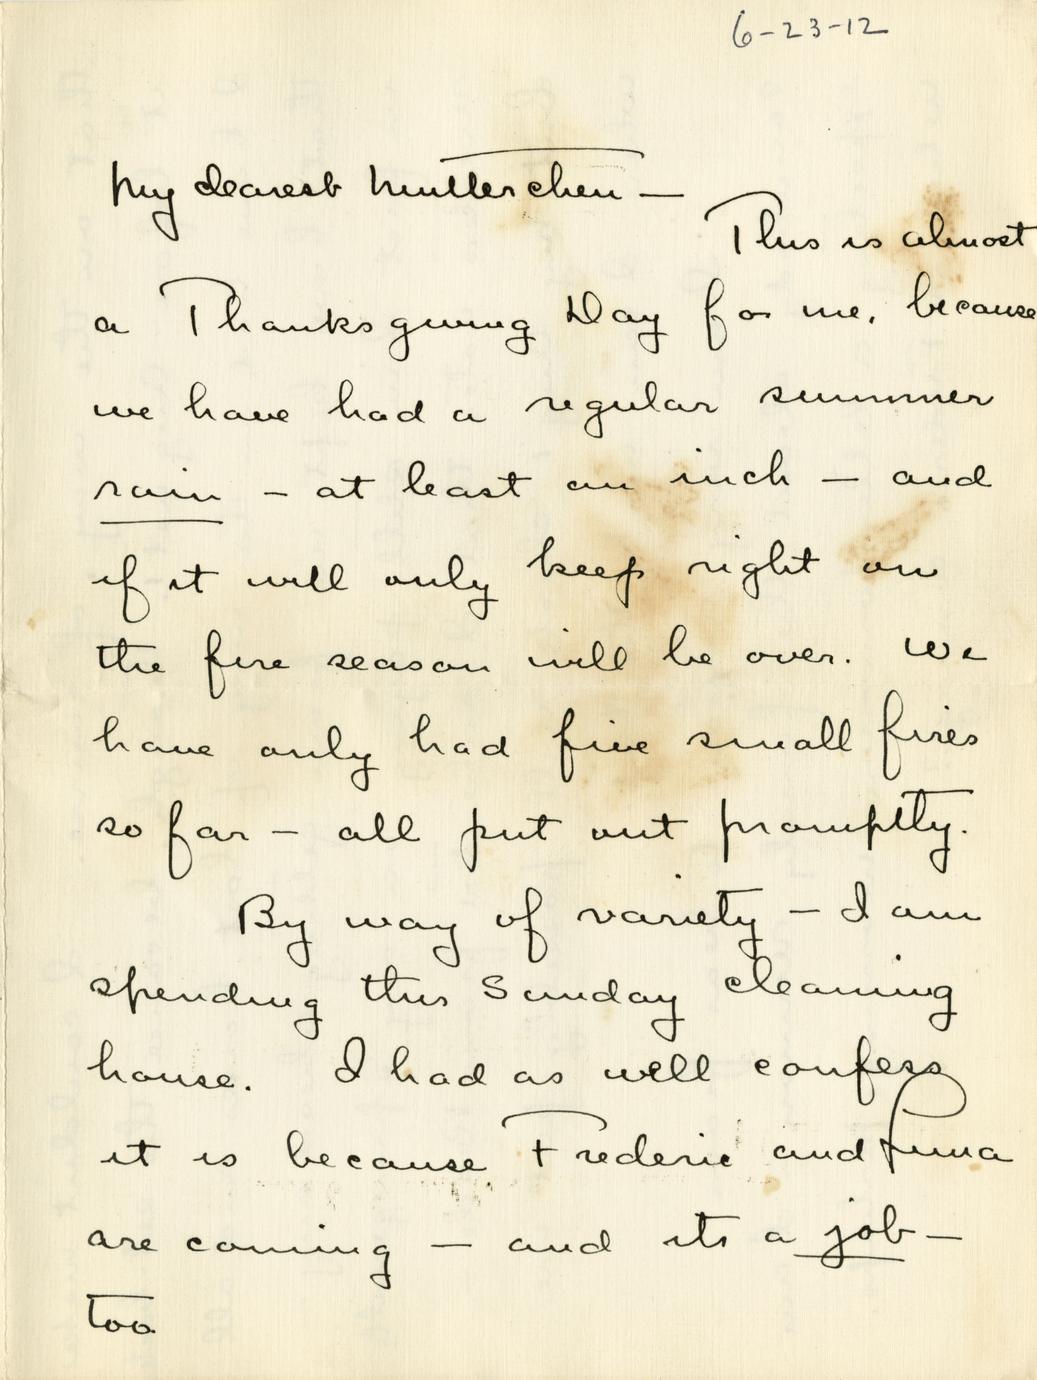 6-23-12
My dearest Mutterchen —
This is almost
a Thanksgiving Day for me, because
we have had a regular summer
rain — at least an inch — and
if it will only keep right on
the fire season will be over. We
have only had five small fires
so far — all put out promptly.
By way of variety — I am
spending this Sunday cleaning
house. I had as well confess
it is because Frederic and
are coming — and its a job —
too